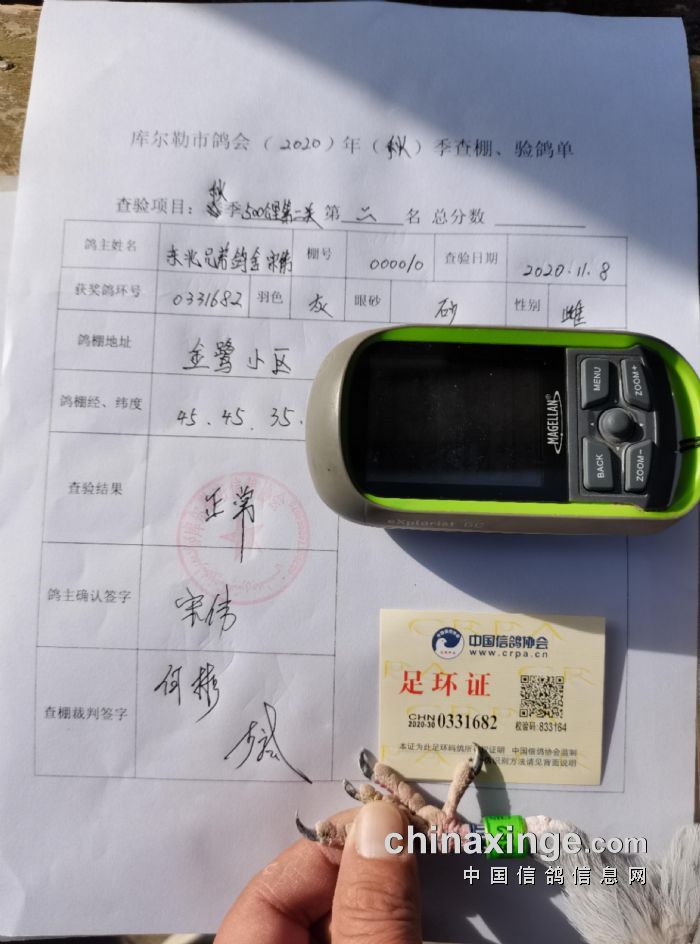 库尔勒市鸽会（2020）年（秋）季查棚、验鸽单
查验项目：秋季500公里第二关 第 六 名 总分数
鸽主姓名 棚号 000010 查验日期 2020.11.8
获奖鸽环号 0331682 羽色 灰 眼砂 砂 性别 雌
鸽棚地址 金鹭小区
鸽棚经、纬度 45.45.35.
查验结果 正常
鸽主确认签字 宋伟
查棚裁判签字 何彬
MAGELLAN
MENU
ZOOM+
BACK
ZOOM-
eXplorist GC
CRPA
中国信鸽协会
www.crpa.cn
足环证
CHN 2020-30 0331682
校验码:833164
本证为此足环码鸽所有权证明 中国信鸽协会监制
识别方法请见背面说明
chinaxinge.com
中国信鸽信息网